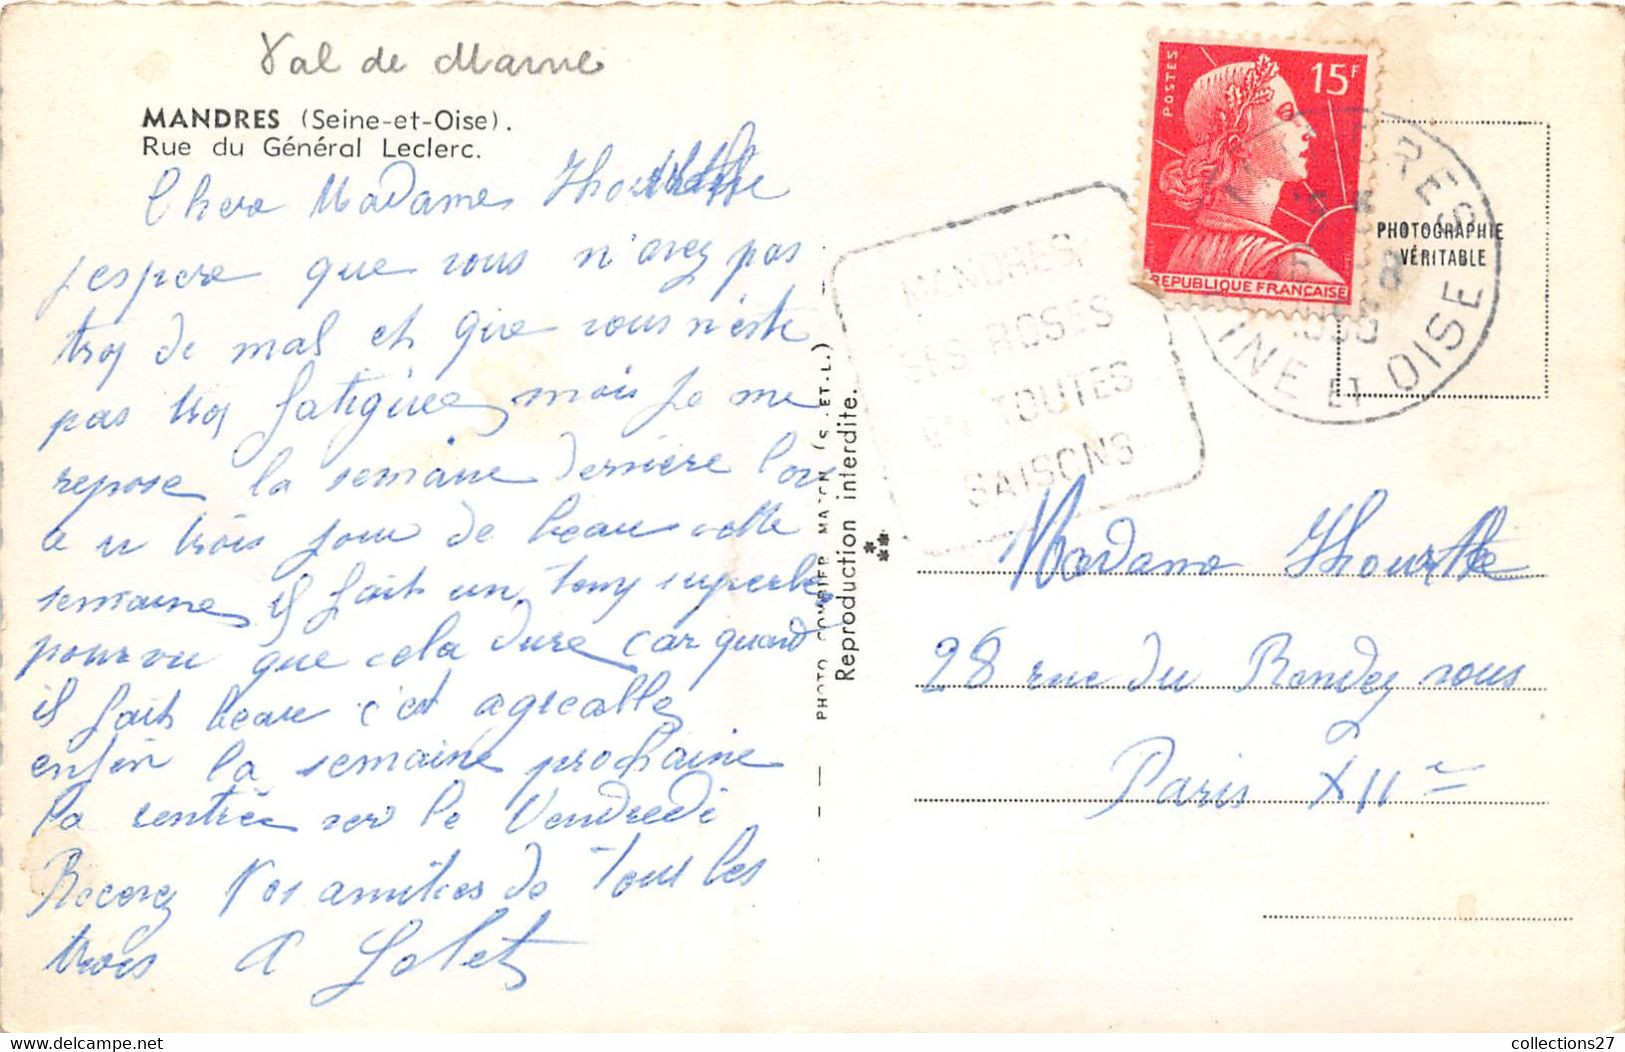 Val de Marne
MANDRES (Seine-et-Oise).
Rue du Général Leclerc.
Chere Madame
j'espere que vous n'avez pas
trop de mal et que vous n'este
pas trop fatiguée mois je me
repose la semaine dernière l'on
a u trois jour de beau cette
semaine il fait un temp superbe
pourvu que cela dure car quand
il fait beau c'est agreable
enfin la semaine prochaine
la rentrée ver le Vendredi
Recevez Nos amitiés de tous les
trois
PHOTO COMBIER MACON (S.ET.L.)
Reproduction interdite.
MANDRES
SES ROSES
EN TOUTES
SAISONS
POSTES
15F
REPUBLIQUE FRANÇAISE
INE ET OISE
PHOTOGRAPHIE
VÉRITABLE
Madame Thourtte
28 rue du Rendez vous
Paris XIIe
collections27